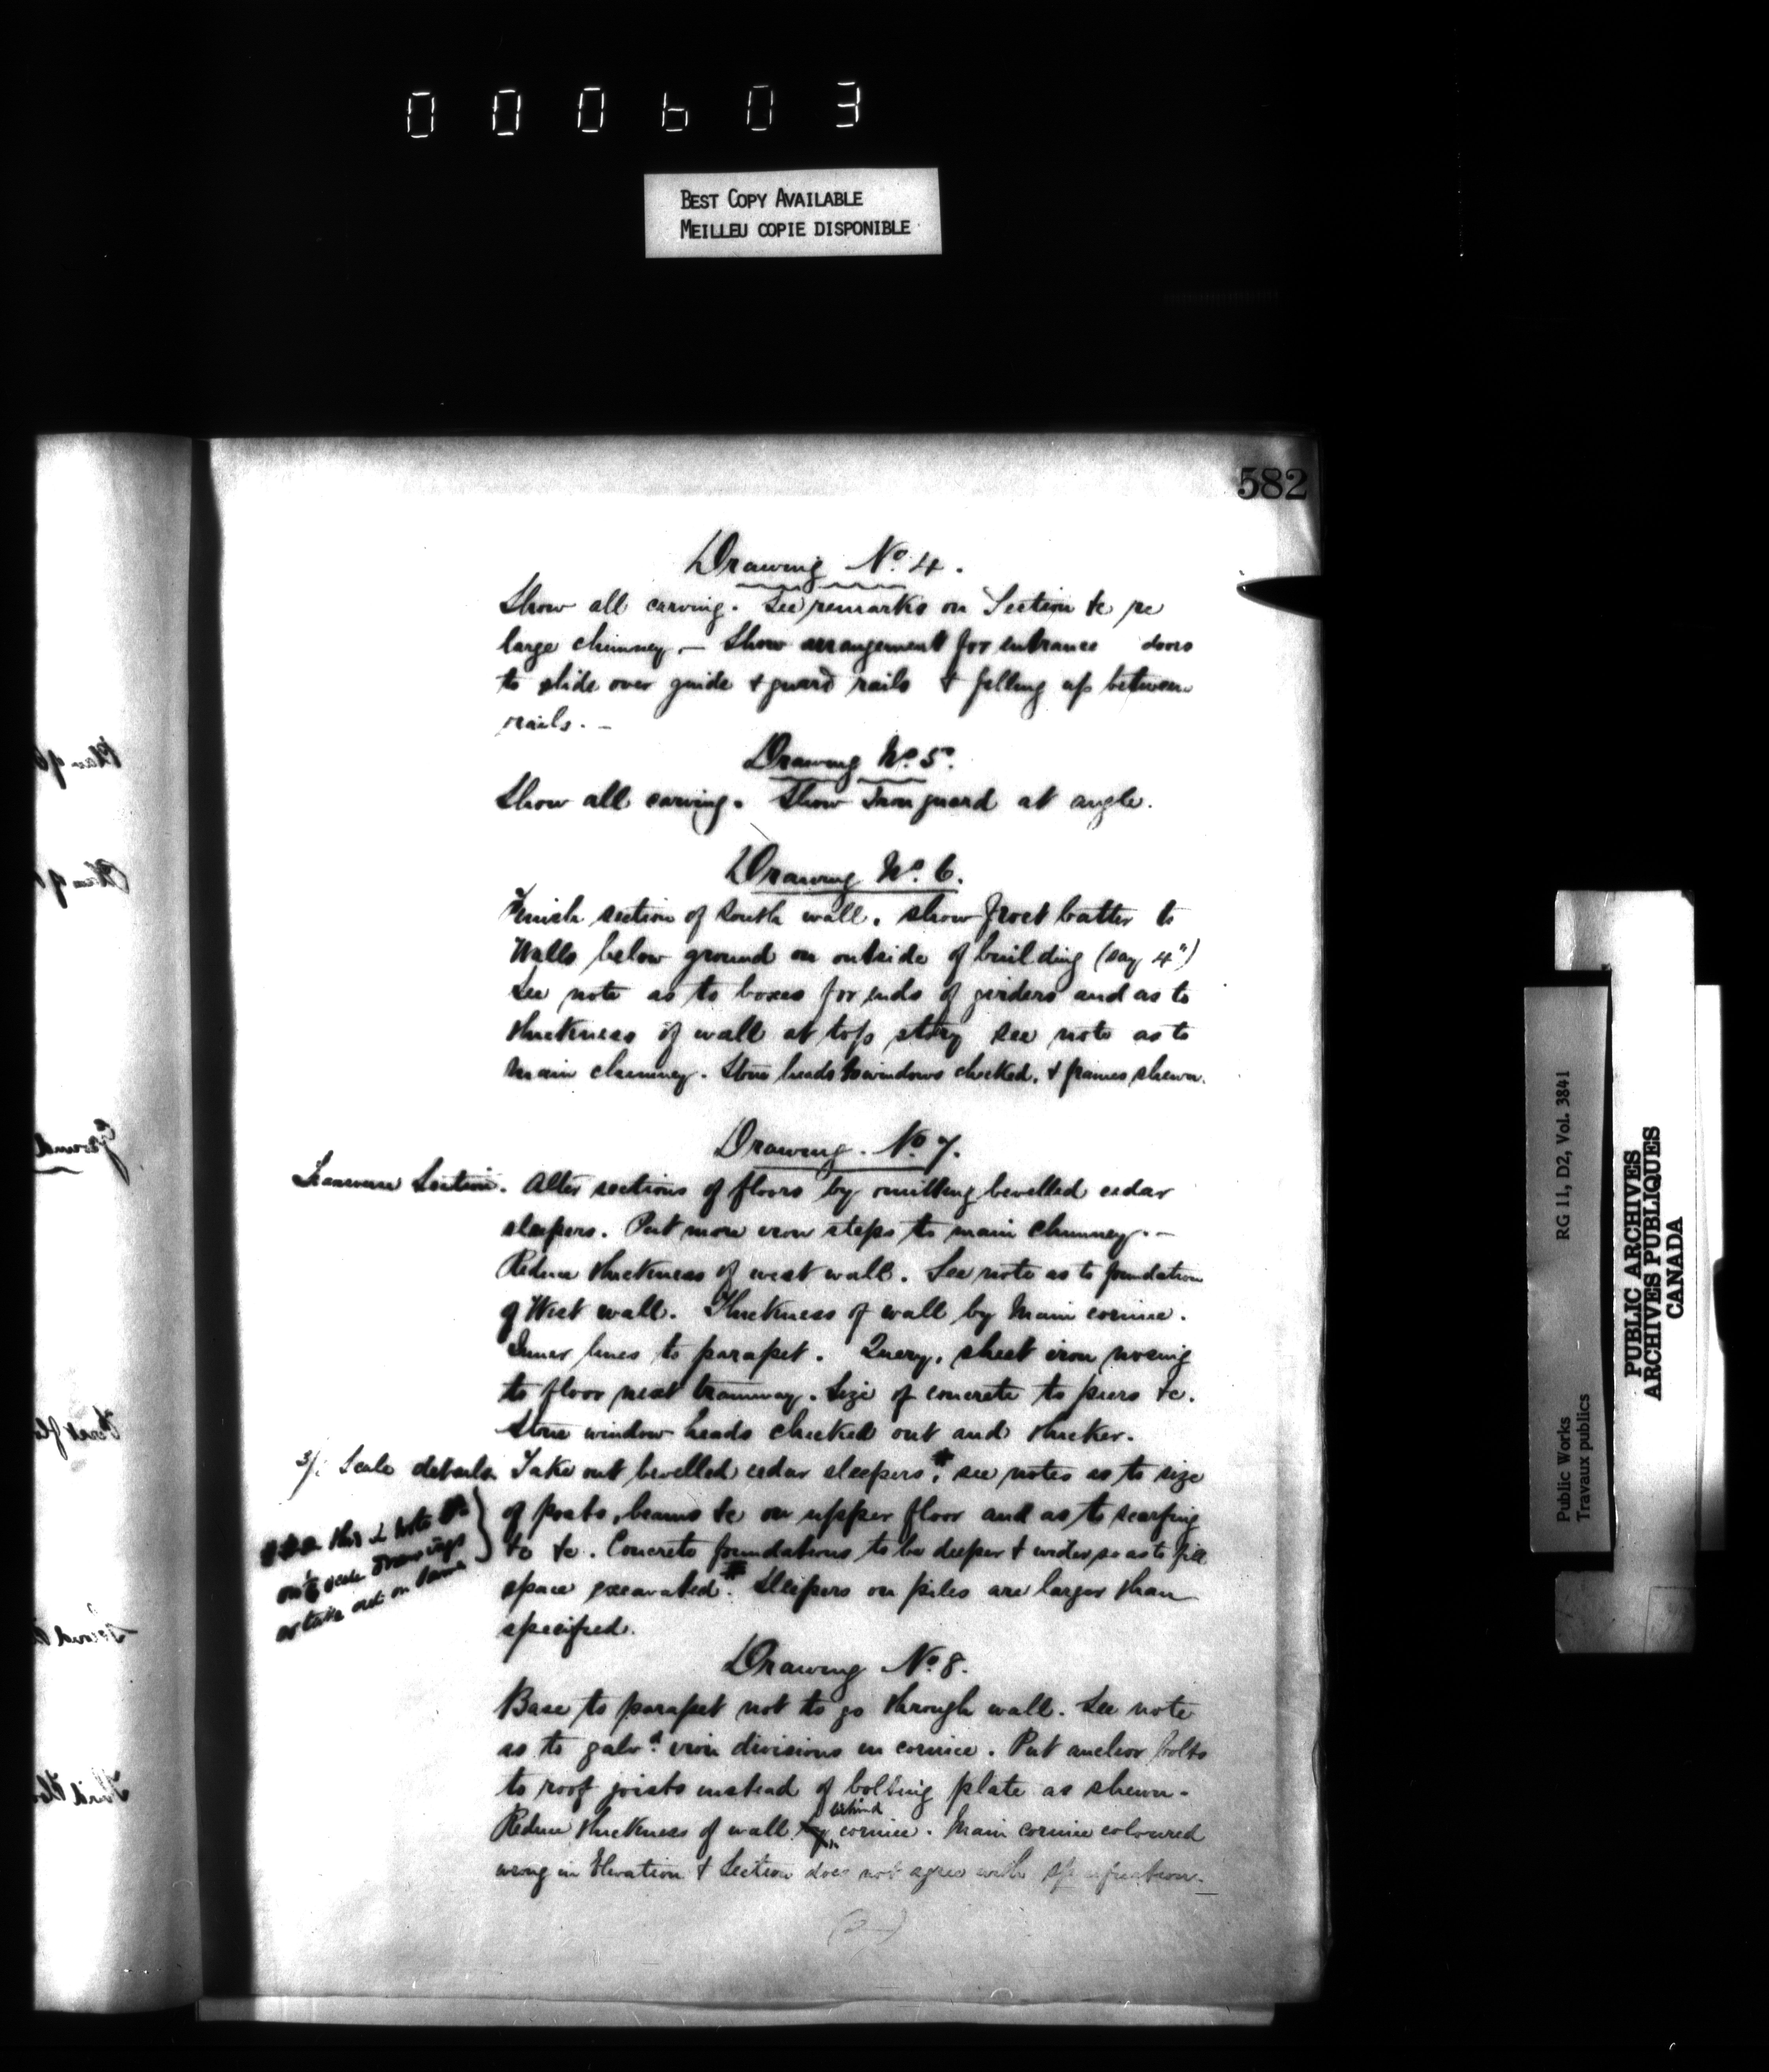 000603
BEST COPY AVAILABLE
MEILLEU COPIE DISPONIBLE
582
Drawing No. 4.
Show all carving. See remarks on Section &c re
large chimney. — Show arrangement for entrance doors
to slide over guide & guard rails & filling up between
rails. —
Drawing No. 5.
Show all carving. Show Iron guard at angle.
Drawing No. 6.
Finish section of South wall. show frost batter to
Walls below ground on outside of building (say 4")
See note as to boxes for ends of girders and as to
thickness of wall at top story see note as to
main chimney. Stone heads to windows checked, & frames shewn.
Drawing. No 7.
Transverse Section. Alter sections of floors by omitting bevelled cedar
sleepers. Put more iron steps to main chimney. —
Reduce thickness of west wall. See note as to foundation
of West wall. Thickness of wall by Main cornice.
Inner lines to parapet. Query, sheet iron nosing
to floor next tramway. Size of concrete to piers &c.
Stone window heads checked out and thicker.
Scale details. Take out bevelled cedar sleepers, see notes as to size
of posts, beams &c on upper floor and as to scarfing
&c &c. Concrete foundations to be deeper & wider so as to fill
this & note
scale drawings
or take out on same
space excavated. Sleepers on piles are larger than
specified.
Drawing No. 8.
Base to parapet not to go through wall. See note
as to galvd. iron divisions in cornice. Put anchor bolts
to roof joists instead of bolting plate as shewn.
behind
Reduce thickness of wall cornice. Main cornice coloured
wrong in Elevation & Section does not agree with specification. —
RG 11, D2, Vol. 3841
Public Works
Travaux publics
PUBLIC ARCHIVES
ARCHIVES PUBLIQUES
CANADA